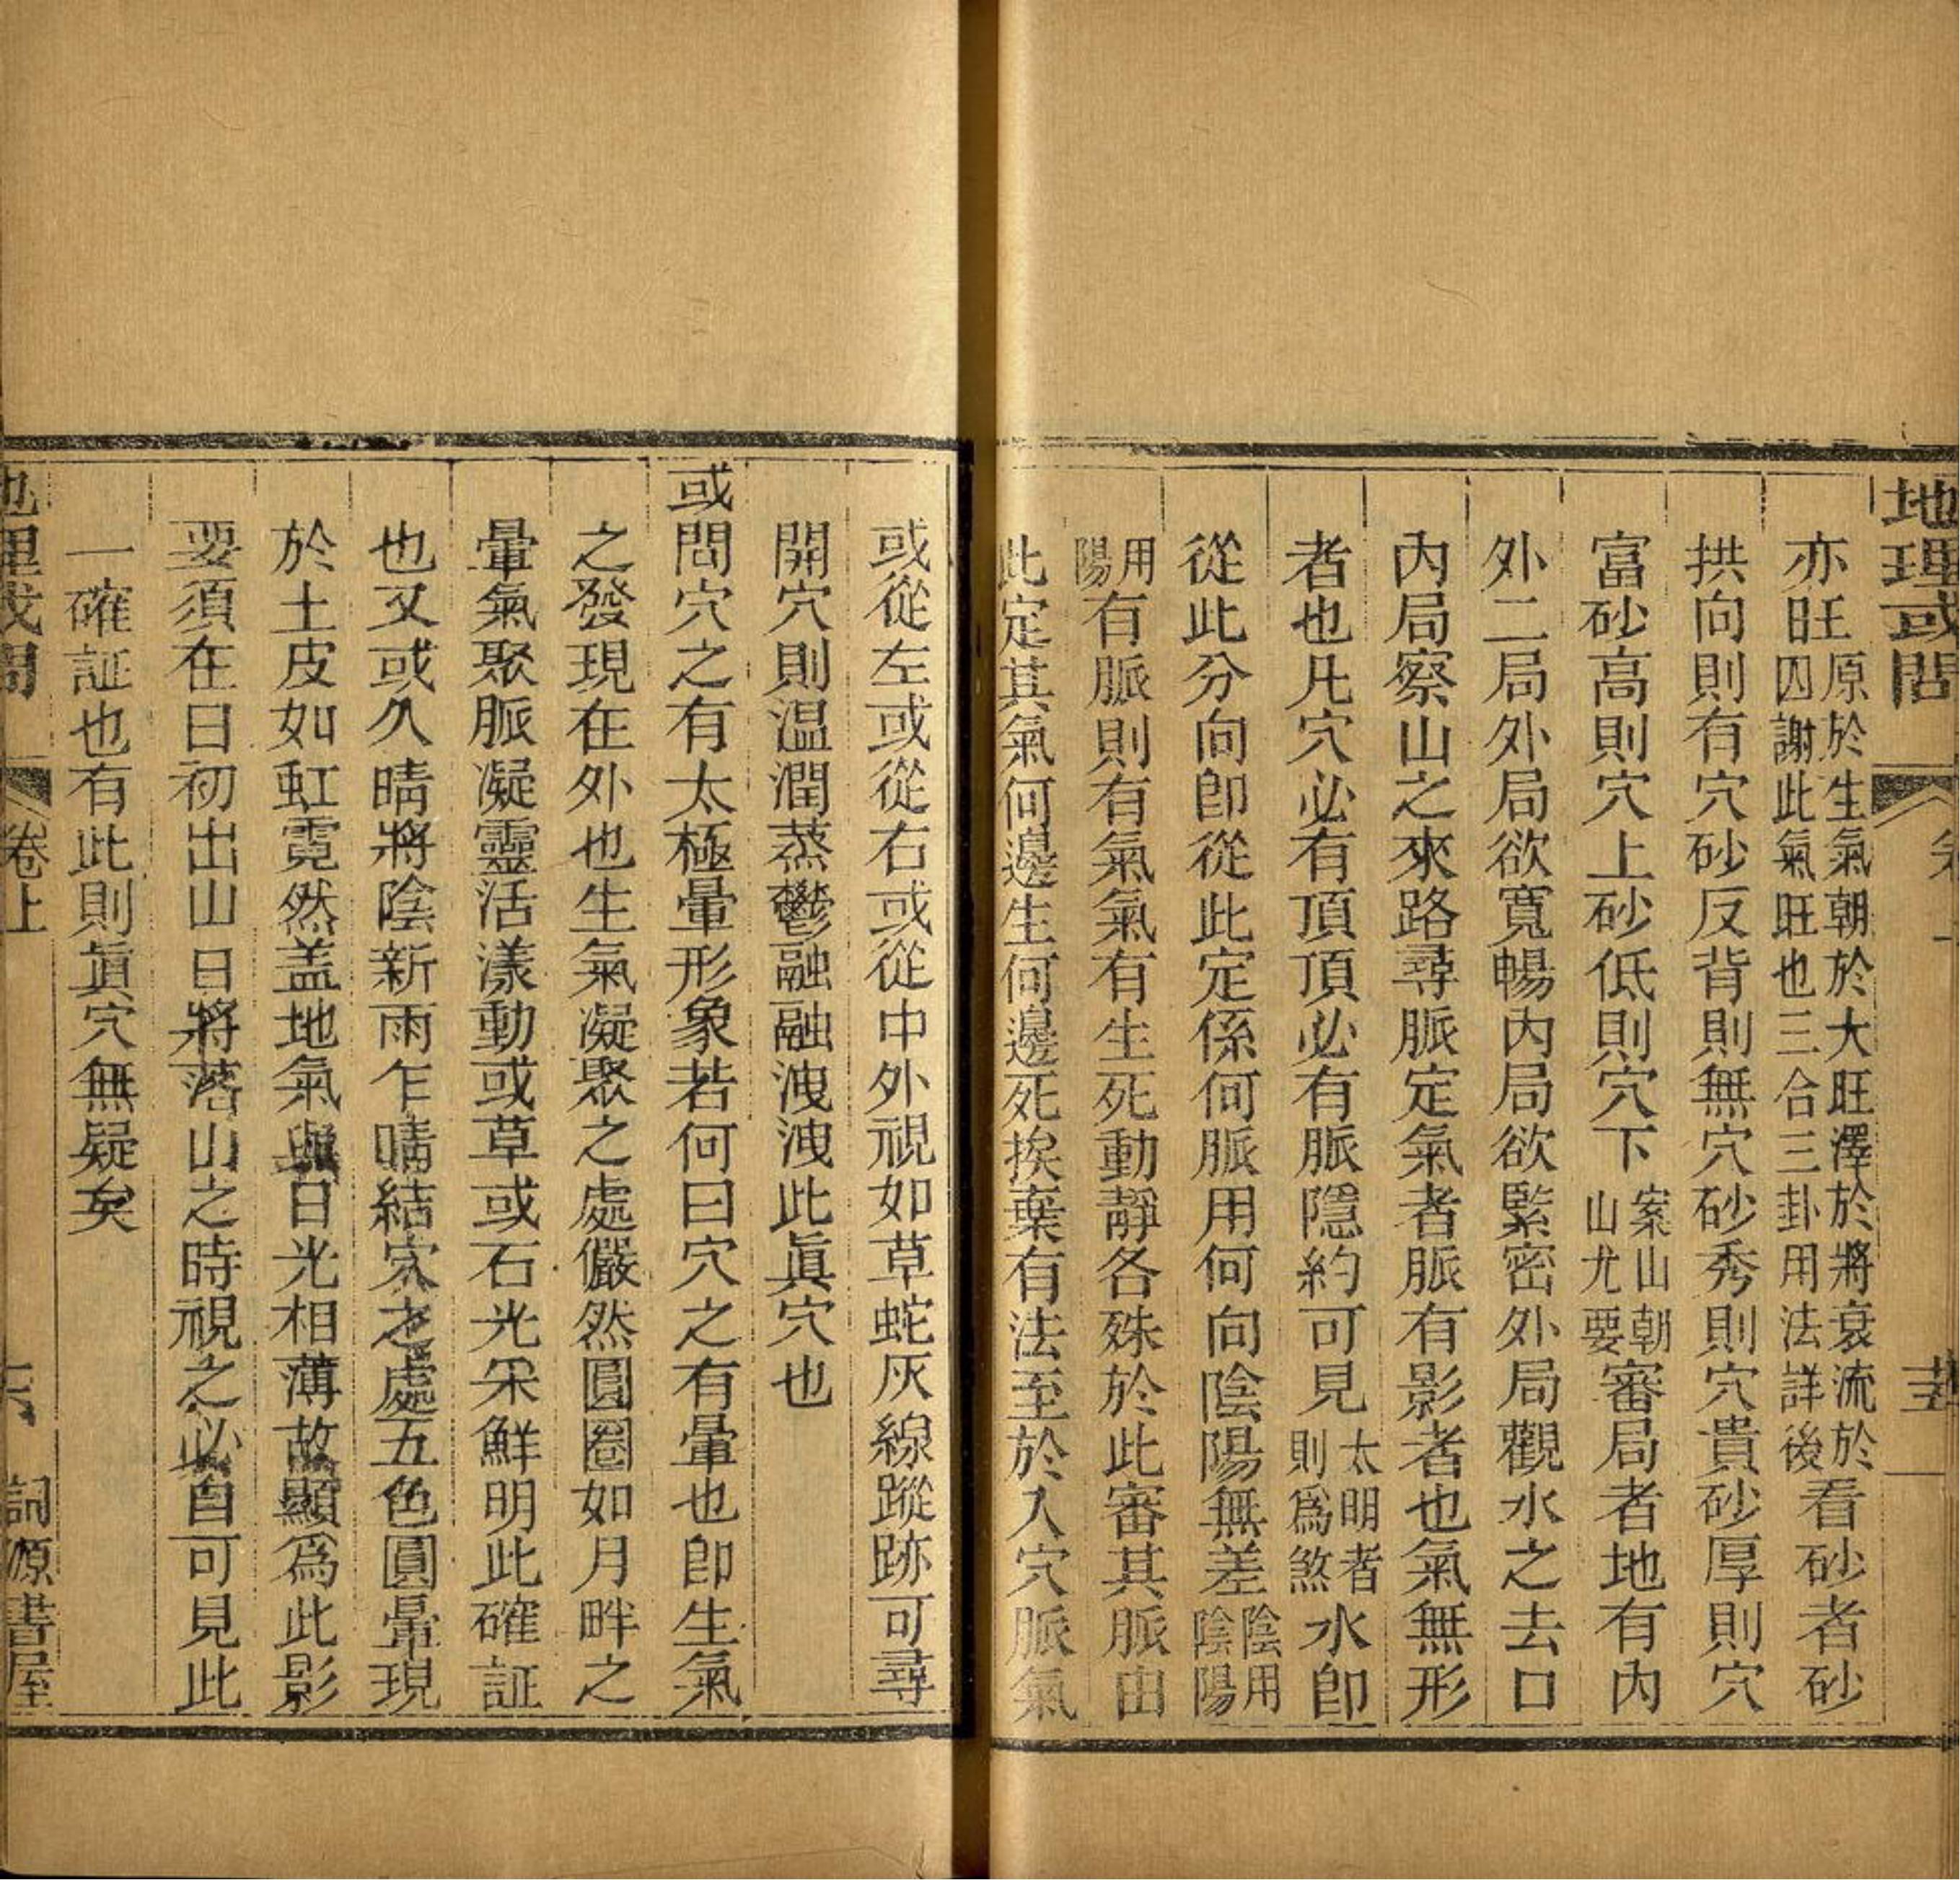 地理或問
亦旺原於生氣朝於大旺澤於將衰流於囚謝此氣旺也三合三卦用法詳後看砂者砂
拱向則有穴砂反背則無穴砂秀則穴貴砂厚則穴
富砂高則穴上砂低則穴下案山朝山尤要審局者地有內
外二局外局欲寬暢內局欲緊密外局觀水之去口
內局察山之來路尋脈定氣者脈有影者也氣無形
者也凡穴必有頂頂必有脈隱約可見太明者則爲煞水卽
從此分向卽從此定係何脈用何向陰陽無差陰用陰陽
用陽有脈則有氣氣有生死動靜各殊於此審其脈由
此定其氣何邊生何邊死挨棄有法至於入穴脈氣
或從左或從右或從中外視如草蛇灰線蹤跡可尋
開穴則温潤蒸鬱融融洩洩此眞穴也
或問穴之有太極暈形象若何曰穴之有暈也卽生氣
之發現在外也生氣凝聚之處儼然圓圈如月畔之
暈氣聚脈凝靈活漾動或草或石光采鮮明此確証
也又或久晴將陰新雨乍晴結穴之處五色圓暈現
於土皮如虹霓然盖地氣與日光相薄故顯爲此影
要須在日初出山日將落山之時視之必自可見此
一確証也有此則眞穴無疑矣
地理或問 卷上 詞源書屋